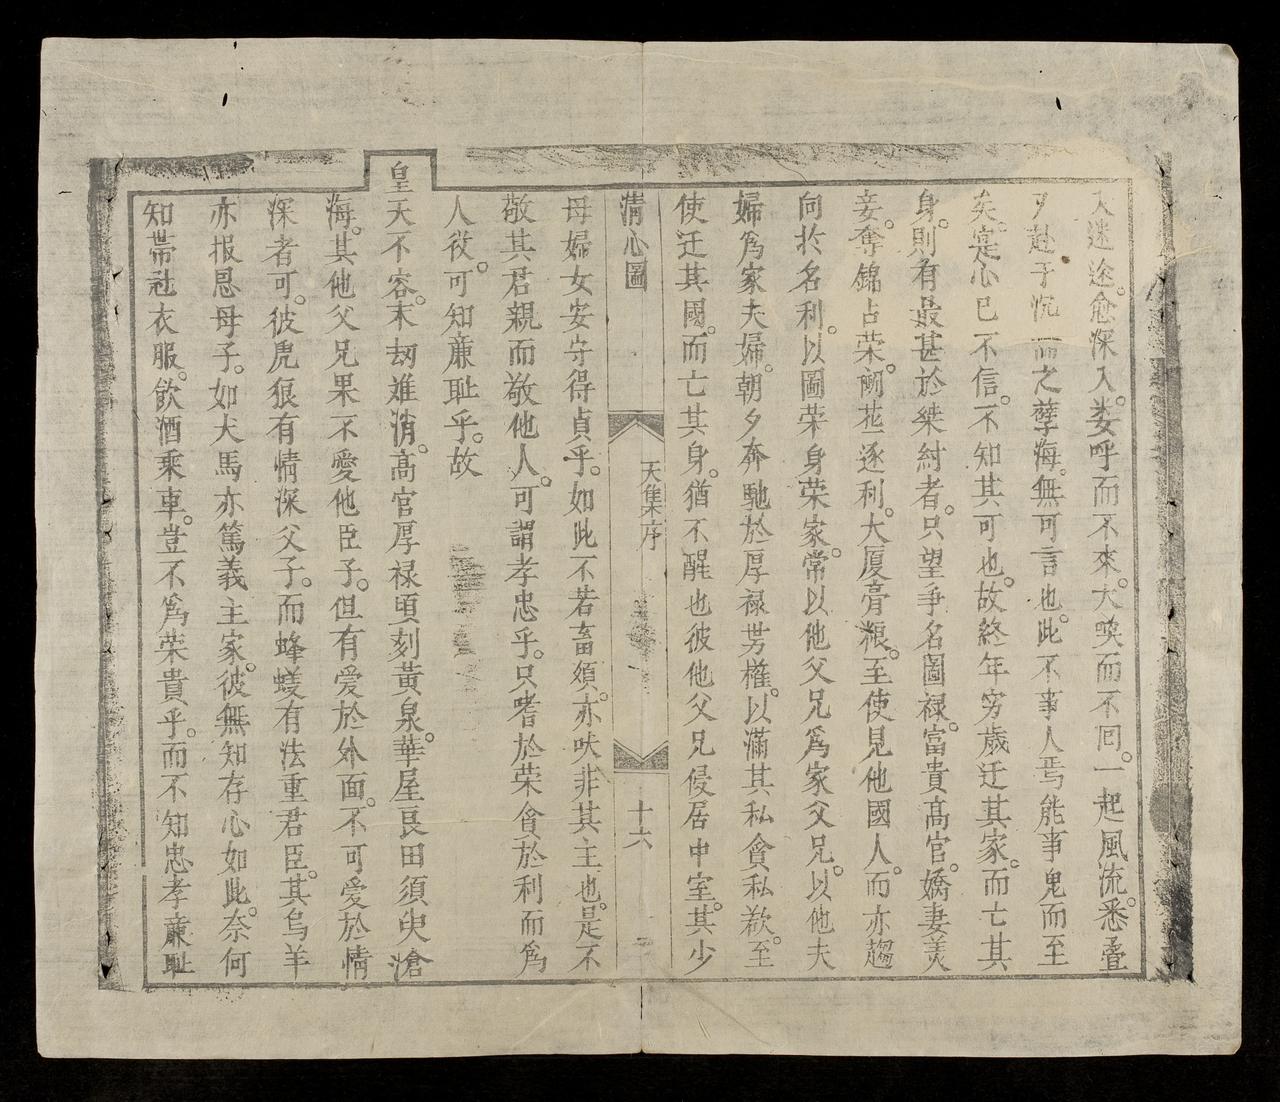 入迷途。愈深入。娄呼而不來。大喚而不回。一起風流。悉疊
赴于沉而之孽海。無可言也。此不事人焉能事鬼而至
矣。寔心已不信。不知其可也。故終年穷歲迁其家。而亡其
身。則有最甚於桀紂者。只望爭名圖禄。富貴高官。嬌妻羙
妾。奪錦占荣。閙花逐利。大厦膏粮。至使見他國人。而亦趨
向扵名利。以圖荣身荣家。常以他父兄爲家父兄。以他夫
婦爲家夫婦。朝夕奔馳於厚禄势權。以滿其私貪私欲。至
使迁其國。而亡其身。猶不醒也彼他父兄侵居中室。其少
清心圖
天集序
十六
母婦女安守得貞乎。如此不若畜類。亦吠非其主也。是不
敬其君親而敬他人。可謂孝忠乎。只嗜於荣貪於利而爲
人役。可知亷耻乎。故
皇天不容。末刼难消。高官厚禄頃刻黃泉。華屋良田須臾滄
海。其他父兄果不愛他臣子。但有爱於外面。不可爱於情
深者可。彼虎狼有情深父子。而蜂蟻有法重君臣。其烏羊
亦报恩母子。如犬馬亦篤義主家。彼無知存心如此。奈何
知帶社衣服。飲酒乘車。豈不爲荣貴乎。而不知忠孝亷耻